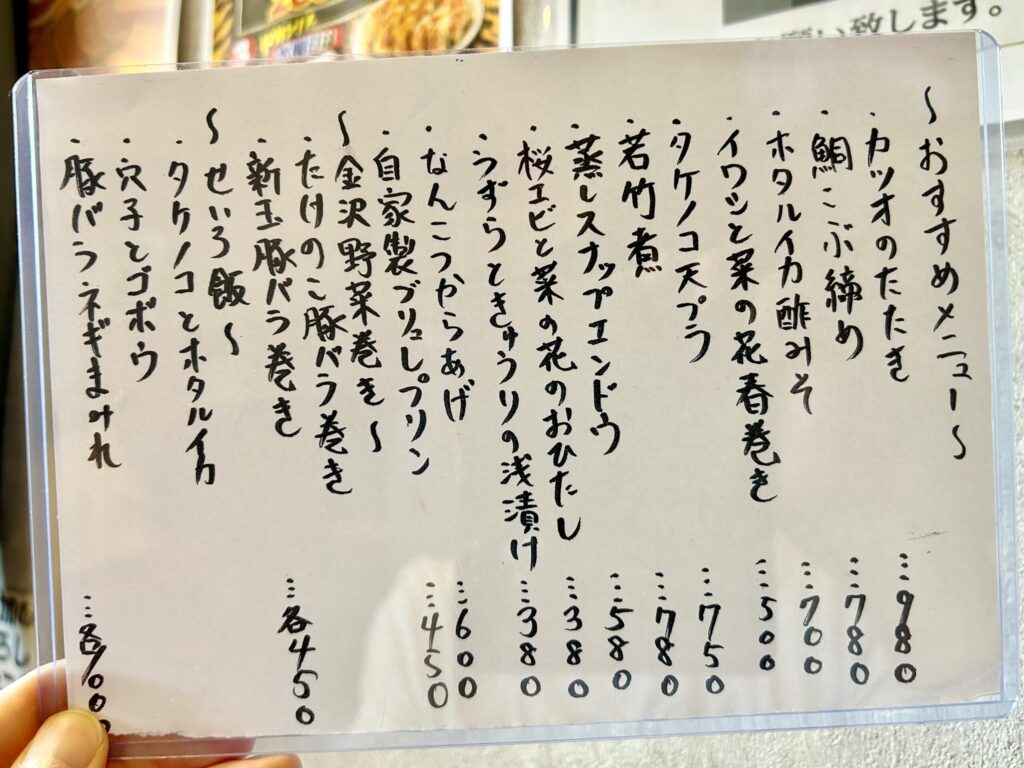 い致します。
～おすすめメニュー～
・カツオのたたき …980
・鯛こぶ締め …780
・ホタルイカ酢みそ …700
・イワシと菜の花春巻き …500
・タケノコ天プラ …750
・若竹煮 …780
・蒸しスナップエンドウ …580
・桜エビと菜の花のおひたし …380
・うずらときゅうりの浅漬け …380
・なんこつからあげ …600
・自家製ブリュレプリン …450
～金沢野菜巻き～
・たけのこ豚バラ巻き
・新玉豚バラ巻き …各450
～せいろ飯～
・タケノコとホタルイカ
・穴子とゴボウ
・豚バラネギまみれ …各